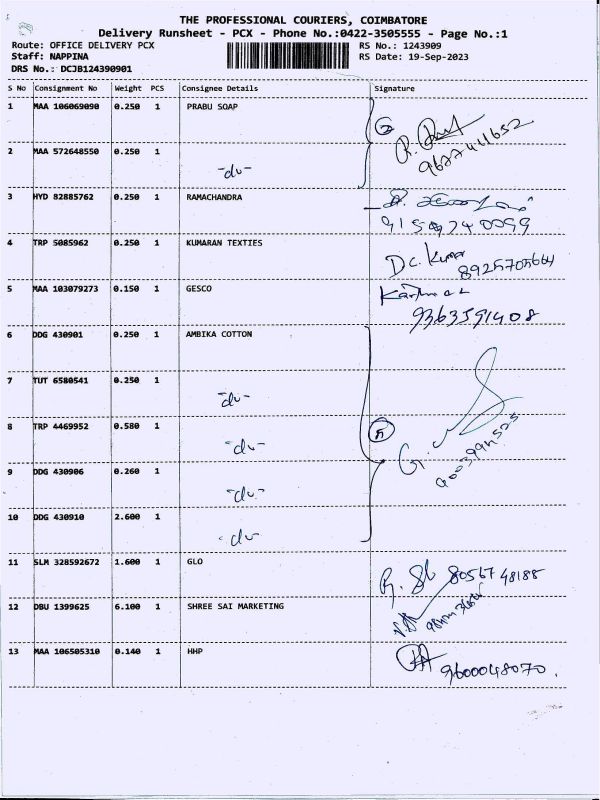 THE PROFESSIONAL COURIERS, COIMBATORE
Delivery Runsheet - PCX - Phone No.:0422-3505555 - Page No.:1
Route: OFFICE DELIVERY PCX
RS No.: 1243909
Staff: NAPPINA
RS Date: 19-Sep-2023
DRS No.: DCJB124390901
S No Consignment No Weight PCS Consignee Details Signature
1 MAA 106069090 0.250 1 PRABU SOAP
2 MAA 572648550 0.250 1 -du-
9677441652
3 HYD 82885762 0.250 1 RAMACHANDRA
9150974 0099
4 TRP 5085962 0.250 1 KUMARAN TEXTIES
Dc. Kumar
8925705664
5 MAA 103079273 0.150 1 GESCO
9363591408
6 DDG 430901 0.250 1 AMBIKA COTTON
7 TUT 6580541 0.250 1 -du-
8 TRP 4469952 0.580 1 -du- 5
9 DDG 430906 0.260 1 -du-
10 DDG 430910 2.600 1 -du-
11 SLM 328592672 1.600 1 GLO 8056748188
12 DBU 1399625 6.100 1 SHREE SAI MARKETING
13 MAA 106505310 0.140 1 HHP
9600048070.